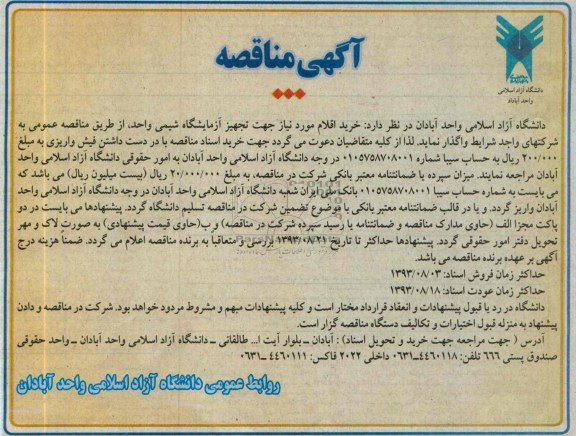 آگهی مناقصه
دانشگاه آزاد اسلامی
واحد آبادان
دانشگاه آزاد اسلامی واحد آبادان در نظر دارد: خرید اقلام مورد نیاز جهت تجهیز آزمایشگاه شیمی واحد، از طریق مناقصه عمومی به
شرکتهای واجد شرایط واگذار نماید. لذا از کلیه متقاضیان دعوت می گردد جهت خرید اسناد مناقصه با در دست داشتن فیش واریزی به مبلغ
۲۰۰/۰۰۰ ریال به حساب سیبا شماره ۰۱۰۵۷۵۸۷۰۸۰۰۱ در وجه دانشگاه آزاد اسلامی واحد آبادان به امور حقوقی دانشگاه آزاد اسلامی واحد
آبادان مراجعه نمایند. میزان سپرده یا ضمانتنامه معتبر بانکی شرکت در مناقصه، به مبلغ ۲۰/۰۰۰/۰۰۰ ریال (بیست میلیون ریال) می باشد که
می بایست به شماره حساب سیبا ۰۱۰۵۷۵۸۷۰۸۰۰۱ بانک ملی ایران شعبه دانشگاه آزاد اسلامی واحد آبادان در وجه دانشگاه آزاد اسلامی واحد
آبادان واریز گردد. و یا در قالب ضمانتنامه معتبر بانکی با موضوع تضمین شرکت در مناقصه تسلیم دانشگاه گردد. پیشنهادها می بایست در دو
پاکت مجزا الف (حاوی مدارک مناقصه و ضمانتنامه یا رسید سپرده شرکت در مناقصه) و ب(حاوی قیمت پیشنهادی) به صورت لاک و مهر
تحویل دفتر امور حقوقی گردد. پیشنهادها حداکثر تا تاریخ ۱۳۹۳/۰۸/۲۱ بررسی و متعاقبا به برنده مناقصه اعلام می گردد. ضمناً هزینه درج
آگهی بر عهده برنده مناقصه می باشد.
حداکثر زمان فروش اسناد: ۱۳۹۳/۰۸/۰۳
حداکثر زمان عودت اسناد: ۱۳۹۳/۰۸/۱۸
دانشگاه در رد یا قبول پیشنهادات و انعقاد قرارداد مختار است و کلیه پیشنهادات مبهم و مشروط مردود خواهد بود. شرکت در مناقصه و دادن
پیشنهاد به منزله قبول اختیارات و تکالیف دستگاه مناقصه گزار است.
آدرس ( جهت مراجعه جهت خرید و تحویل اسناد) : آبادان ــ بلوار آیت ا... طالقانی ــ دانشگاه آزاد اسلامی واحد آبادان ــ واحد حقوقی
صندوق پستی ۶۶۶ تلفن: ۴۴۶۰۱۱۸ــ۰۶۳۱ داخلی ۲۰۲۲ فاکس: ۴۴۶۰۱۱۱ــ۰۶۳۱
روابط عمومی دانشگاه آزاد اسلامی واحد آبادان